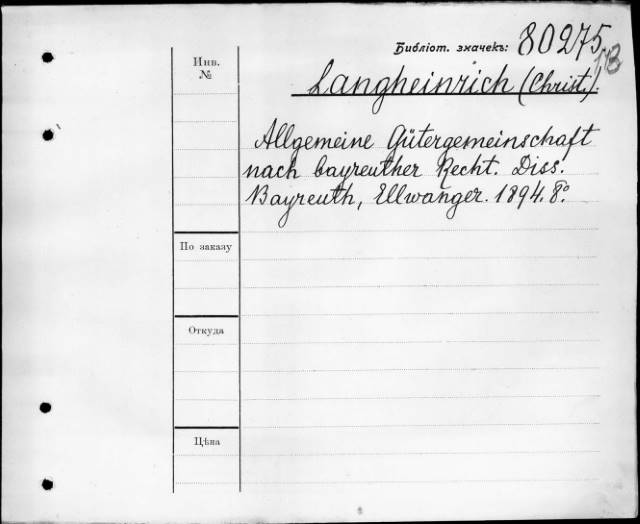 Библіот. значекъ: 80275.
Инв.
№
Langheinrich (Christ.)
Allgemeine Gütergemeinschaft
nach bayreuther Recht. Diss.
Bayreuth, Ellwanger. 1894. 8º.
По заказу
Откуда
Цѣна